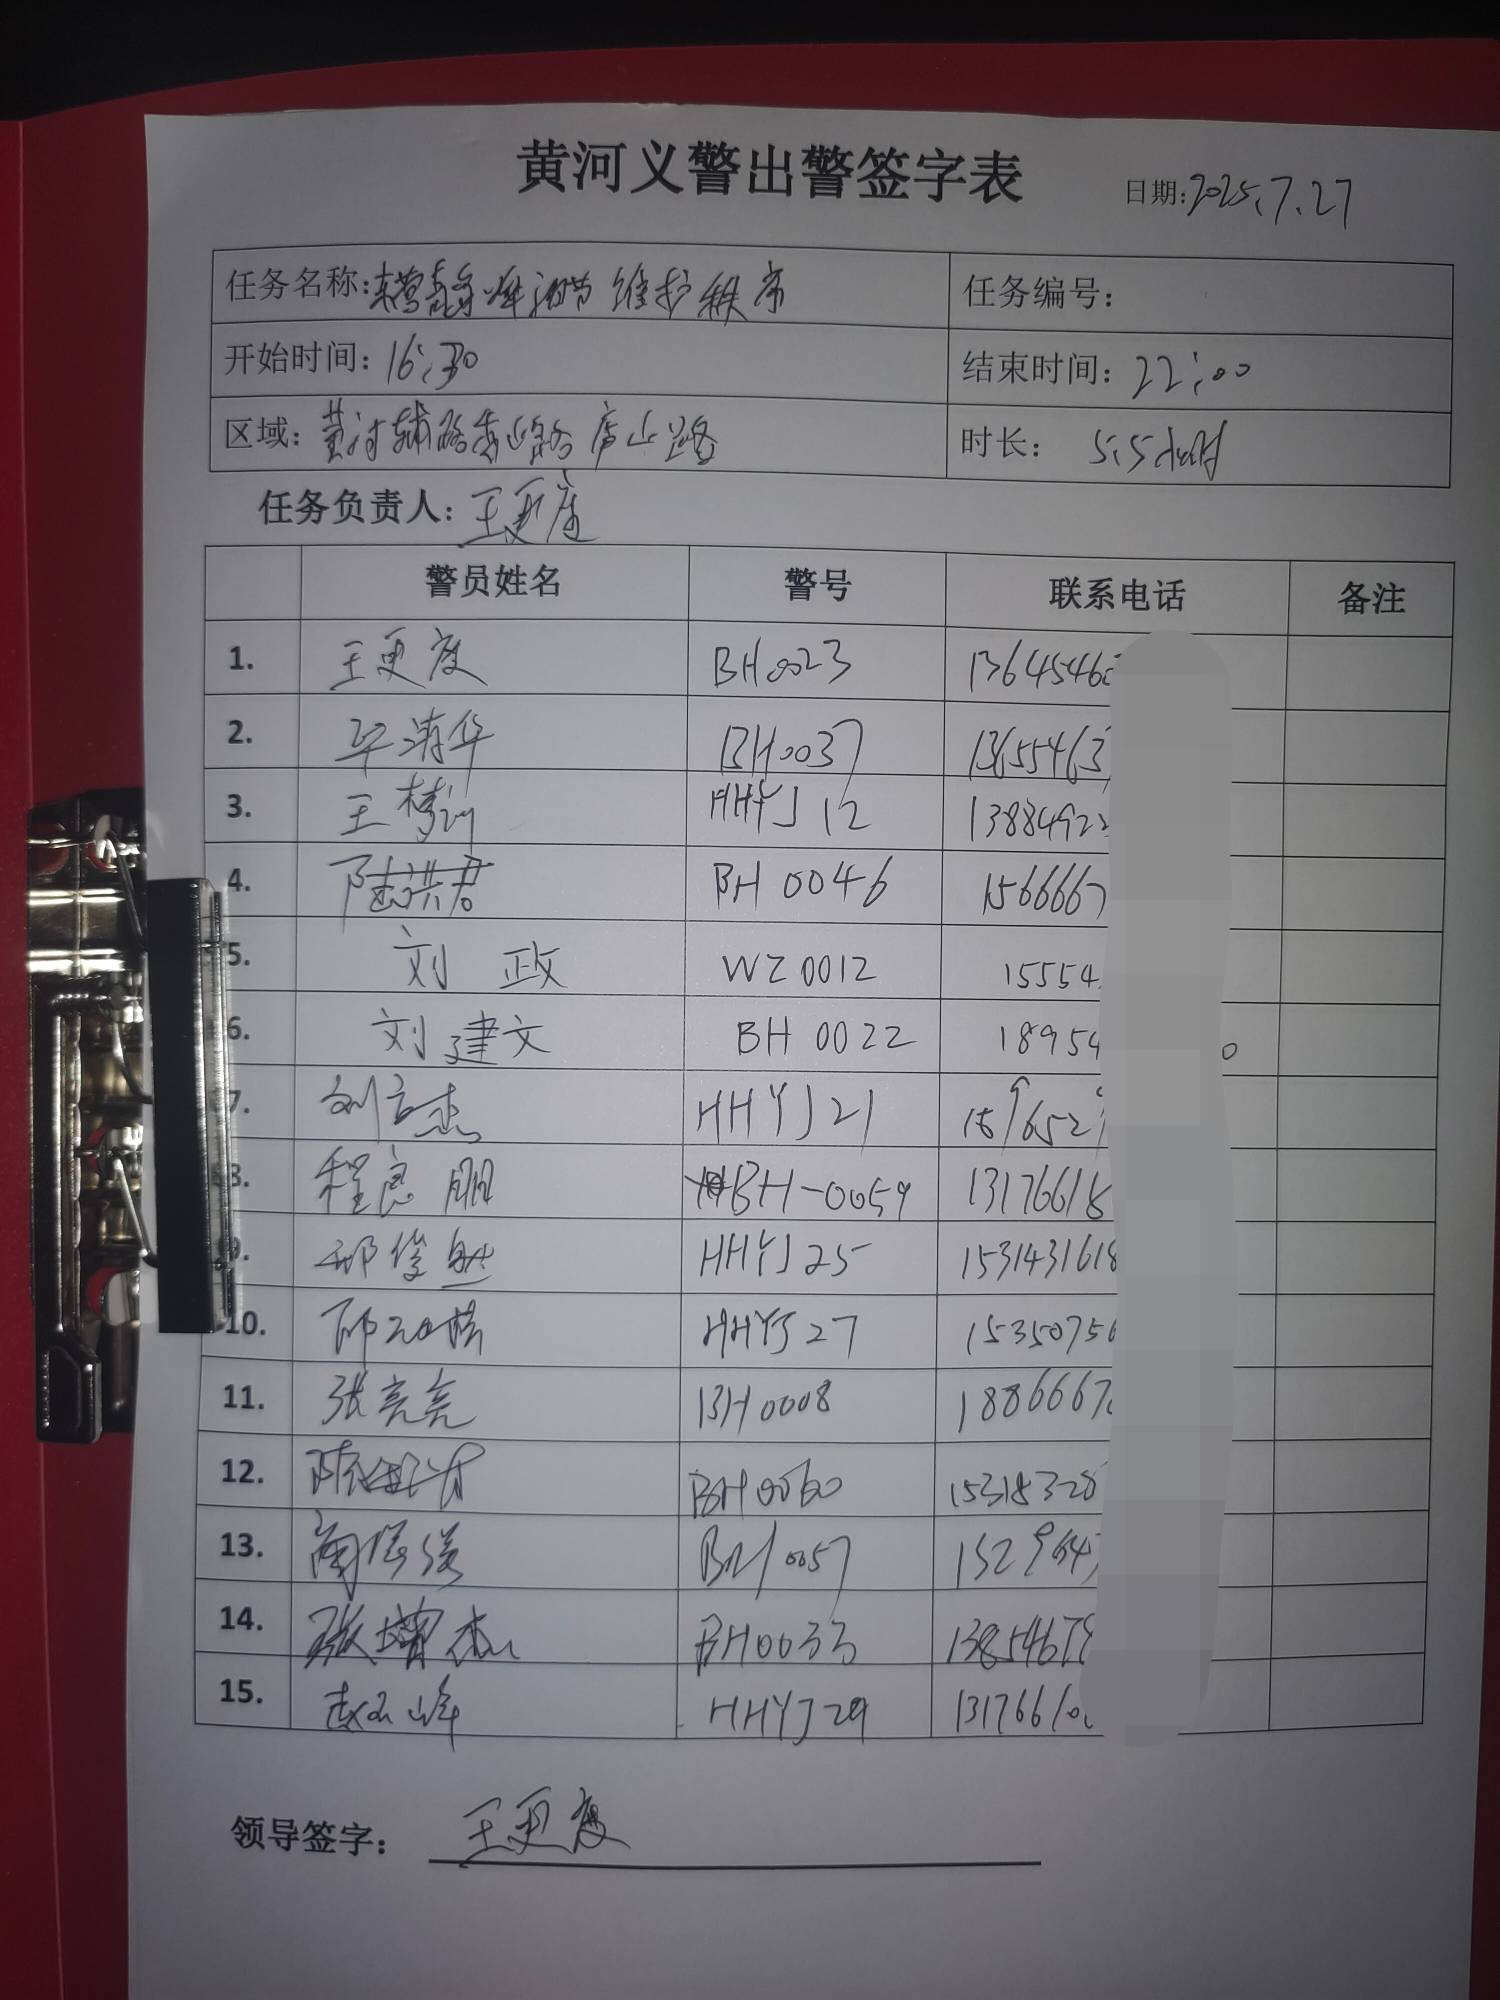 黄河义警出警签字表
日期:2025.7.27
任务名称: 维护秩序 任务编号:
开始时间:16:30 结束时间:22:00
区域:黄河辅路 庐山路 时长: 5.5小时
任务负责人:王更度
警员姓名 警号 联系电话 备注
1. 王更度 BH0023 13645460
2. 毕清华 BH0037 13655463
3. 王梦 HHYJ12 13884922
4. 陆洪君 BH0046 1566667
5. 刘政 WZ0012 15554
6. 刘建文 BH0022 18954 0
7. 刘立杰 HHYJ21
8. 程良朋 BH-0059 13176618
9. 邢俊 HHYJ25 1531431618
10. HHYJ27 15350756
11. 张亮亮 BH0008 1886667
12. BH0060 15318328
13. BH0057
14. 张增杰 BH0033 1385467
15. 赵 峰 HHYJ29 1317661
领导签字: 王更度